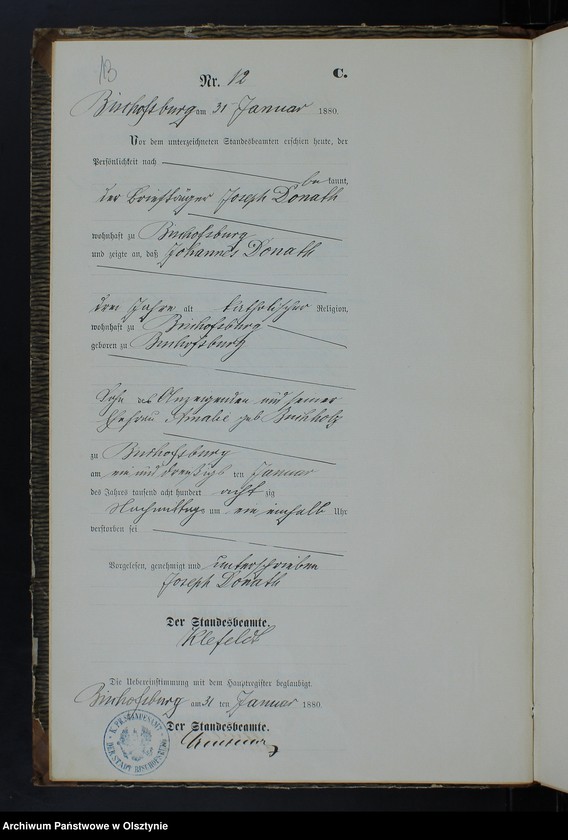 13
Nr. 12
C.
Bischofsburg am 31 Januar 1880.
Vor dem unterzeichneten Standesbeamten erschien heute, der
Persönlichkeit nach
be kannt,
der Briefträger Joseph Donath
wohnhaft zu Bischofsburg
und zeigte an, daß Johannes Donath
drei Jahre alt katholischer Religion,
wohnhaft zu Bischofsburg
geboren zu Bischofsburg
Sohn des Anzeigenden und seiner
Ehefrau Amalie geb Buchholz
zu Bischofsburg
am ein und dreißigsten Januar
des Jahres tausend acht hundert acht zig
Nachmittags um ein einhalb Uhr
verstorben sei
Vorgelesen, genehmigt und unterschrieben
Joseph Donath
Der Standesbeamte.
Klefeldt
Die Uebereinstimmung mit dem Hauptregister beglaubigt.
Bischofsburg am 31 ten Januar 1880
Der Standesbeamte.
K. PR. STANDESAMT
DER STADT BISCHOFSBURG
Archiwum Państwowe w Olsztynie